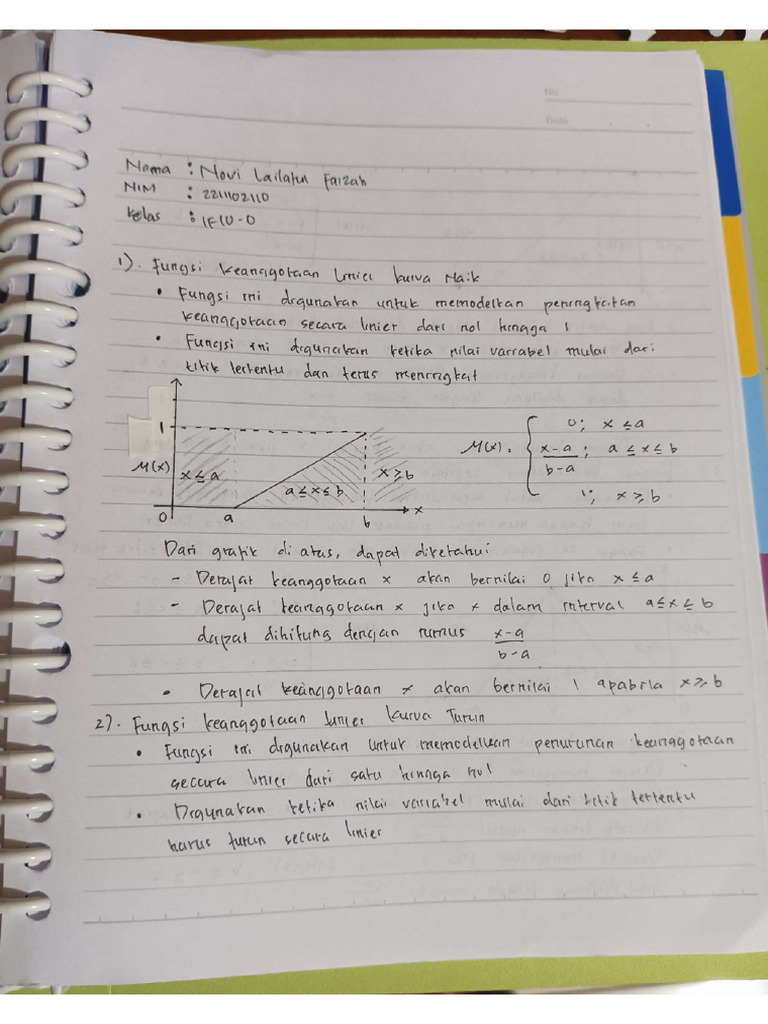 No
Date
Nama : Novi Lailatul Faizah
NIM : 221102110
Kelas : IF10-O
1). Fungsi Keanggotaan Linier kurva Naik
• Fungsi ini digunakan untuk memodelkan peningkatan
keanggotaan secara linier dari nol hingga 1
• Fungsi ini digunakan ketika nilai variabel mulai dari
titik tertentu dan terus meningkat
1
M(x)
x ≤ a
a ≤ x ≤ b
x ≥ b
0
a
b
x
M(x) = { 0; x ≤ a
x-a / b-a ; a ≤ x ≤ b
1; x ≥ b
Dari grafik di atas, dapat diketahui
- Derajat keanggotaan x akan bernilai 0 jika x ≤ a
- Derajat keanggotaan x jika x dalam interval a ≤ x ≤ b
dapat dihitung dengan rumus x-a / b-a
• Derajat keanggotaan x akan bernilai 1 apabila x ≥ b
2). Fungsi keanggotaan linier Kurva Turun
• Fungsi ini digunakan untuk memodelkan penurunan keanggotaan
secara linier dari satu hingga nol
• Digunakan ketika nilai variabel mulai dari titik tertentu
harus turun secara linier